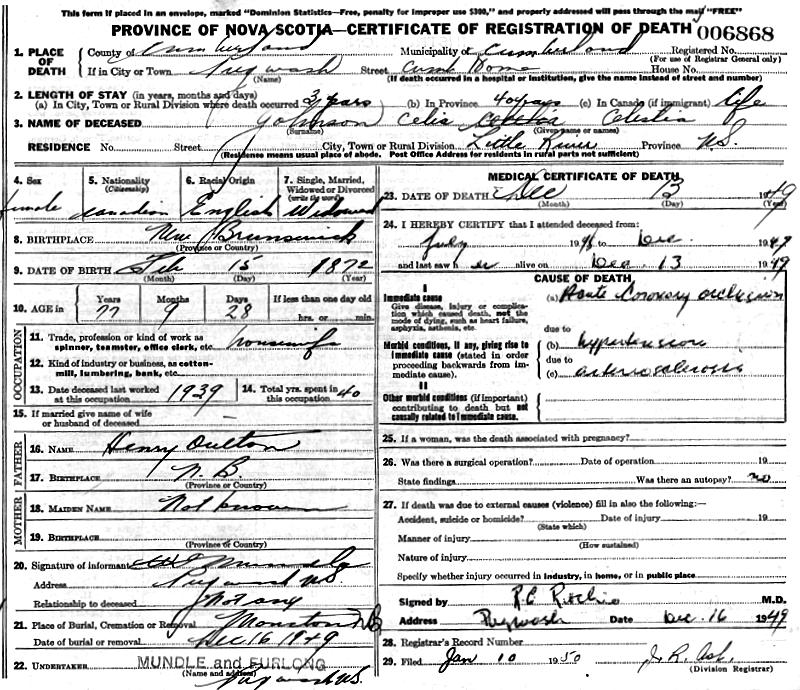 This form if placed in an envelope, marked "Dominion Statistics—Free, penalty for improper use $300," and properly addressed will pass through the mail "FREE"
PROVINCE OF NOVA SCOTIA—CERTIFICATE OF REGISTRATION OF DEATH 006868
1. PLACE OF DEATH County of Cumberland Municipality of Cumberland Registered No.
(For use of Registrar General only)
If in City or Town Pugwash Street Cumb Home House No.
(Name) (If death occurred in a hospital or institution, give the name instead of street and number)
2. LENGTH OF STAY (in years, months and days)
(a) In City, Town or Rural Division where death occurred 3 years (b) In Province 40 years (c) In Canada (if immigrant) life
3. NAME OF DECEASED Johnson Celia Celestia
(Surname) (Given name or names)
RESIDENCE No. Street City, Town or Rural Division Little River Province N.S.
(Residence means usual place of abode. Post Office Address for residents in rural parts not sufficient)
4. Sex 5. Nationality (Citizenship) 6. Racial Origin 7. Single, Married, Widowed or Divorced (write the word)
female Canadian English Widowed
8. BIRTHPLACE New Brunswick
(Province or Country)
9. DATE OF BIRTH Feb 15 1872
(Month) (Day) (Year)
10. AGE in Years Months Days If less than one day old
77 9 28 hrs. or min.
OCCUPATION
11. Trade, profession or kind of work as spinner, teamster, office clerk, etc. housewife
12. Kind of industry or business, as cotton-mill, lumbering, bank, etc.
13. Date deceased last worked at this occupation 1939 14. Total yrs. spent in this occupation 40
15. If married give name of wife or husband of deceased
FATHER
16. NAME Henry Oulton
17. BIRTHPLACE N. B.
(Province or Country)
MOTHER
18. MAIDEN NAME Not known
19. BIRTHPLACE
(Province or Country)
20. Signature of informant Mundle
Address Pugwash N.S.
Relationship to deceased Not any
21. Place of Burial, Cremation or Removal Moncton N.B
Date of burial or removal Dec 16 1949
22. UNDERTAKER MUNDLE and FURLONG
(Name and address) Pugwash N.S.
MEDICAL CERTIFICATE OF DEATH
23. DATE OF DEATH Dec 13 1949
(Month) (Day) (Year)
24. I HEREBY CERTIFY that I attended deceased from:
July 1948 to Dec. 1949
and last saw her alive on Dec. 13 1949
CAUSE OF DEATH
I
Immediate cause (a) Acute Coronary occlusion
Give disease, injury or complication which caused death, not the mode of dying, such as heart failure, asphyxia, asthenia, etc.
due to
Morbid conditions, if any, giving rise to immediate cause (stated in order proceeding backwards from immediate cause).
(b) hypertension
due to
(c) arteriosclerosis
II
Other morbid conditions (if important) contributing to death but not causally related to immediate cause.
25. If a woman, was the death associated with pregnancy?
26. Was there a surgical operation? Date of operation 19
State findings Was there an autopsy? no
27. If death was due to external causes (violence) fill in also the following:—
Accident, suicide or homicide? Date of injury 19
(State which)
Manner of injury
(How sustained)
Nature of injury
Specify whether injury occurred in industry, in home, or in public place
Signed by M.D.
Address Pugwash Date Dec. 16 1949
28. Registrar's Record Number
29. Filed Jan 10 1950 J. R. Ash
(Division Registrar)